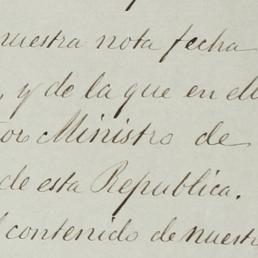 nuestra nota fecha
, y de la que en el
tor Ministro de
de esta Republica.
l contenido de nuestr